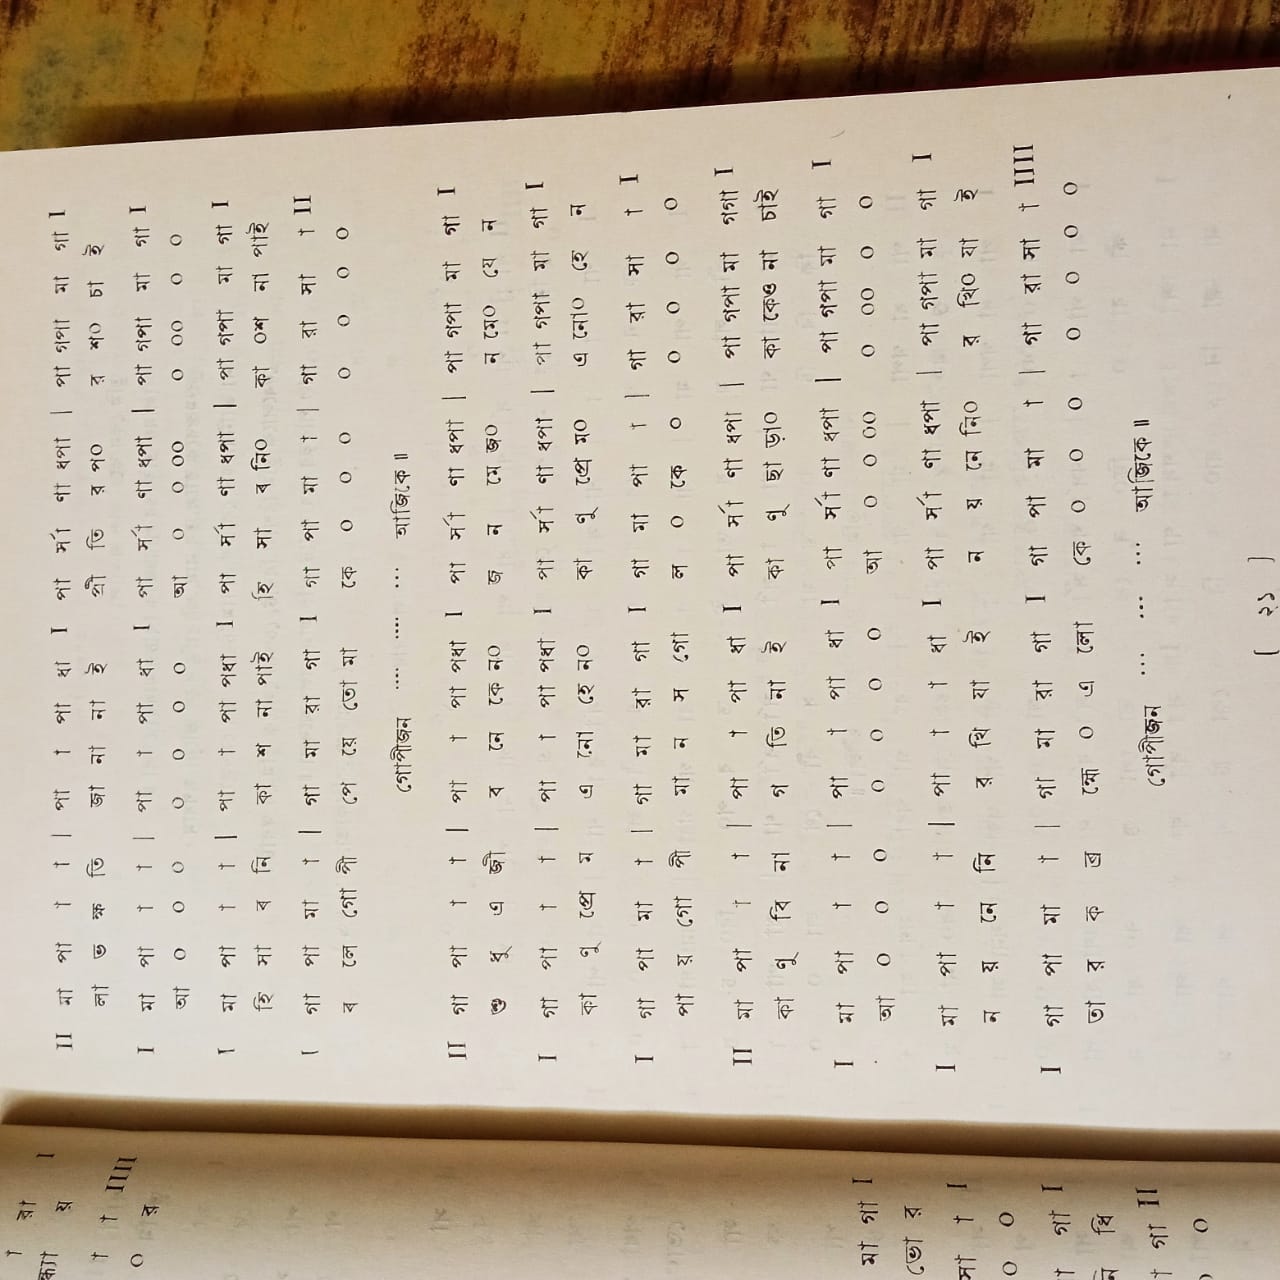 II মা পা া া | পা া পা ধা I পা র্সা ণা ধপা | পা গপা মা গা I
লা ভ ক্ষ তি জা না না ই প্রী তি র প০ র শ০ চা ই
I মা পা া া | পা া পা ধা I পা র্সা ণা ধপা | পা গপা মা গা I
আ ০ ০ ০ ০ ০ ০ ০ আ ০ ০ ০০ ০ ০০ ০ ০
I মা পা া া | পা া পা পধা I পা র্সা ণা ধপা | পা গপা মা গা I
হি সা ব নি কা শ না পাই হি সা ব নি০ কা ০শ না পাই
I গা পা মা া | গা মা রা গা I গা পা মা া | গা রা সা া II
ব লে গো পী পে য়ে তো মা কে ০ ০ ০ ০ ০ ০ ০
গোপীজন .... .... ... আজিকে॥
II গা পা া া | পা া পা পধা I পা র্সা ণা ধপা | পা গপা মা গা I
শু ধু এ জী ব নে কে ন০ জ ন মে জ০ ন মে০ যে ন
I গা পা া া | পা া পা পধা I পা র্সা ণা ধপা | পা গপা মা গা I
কা ণু প্রে ম এ নো হে ন০ কা ণু প্রে ম০ এ নো০ হে ন
I গা পা মা া | গা মা রা গা I গা মা পা া | গা রা সা া I
পা য় গো পী মা ন স গো ল ০ কে ০ ০ ০ ০ ০
II মা পা া া | পা া পা ধা I পা র্সা ণা ধপা | পা গপা মা গগা I
কা ণু বি না গ তি না ই কা ণু ছা ড়া০ কা কেও না চাই
I মা পা া া | পা া পা ধা I পা র্সা ণা ধপা | পা গপা মা গা I
আ ০ ০ ০ ০ ০ ০ ০ আ ০ ০ ০০ ০ ০০ ০ ০
I মা পা া া | পা া া ধা I পা র্সা ণা ধপা | পা গপা মা গা I
ন য় নে নি র খি যা ই ন য় নে নি০ র খি০ যা ই
I গা পা মা া | গা মা রা গা I গা পা মা া | গা রা সা া IIII
তা র ক ব্র হ্মে ০ এ লো কে ০ ০ ০ ০ ০ ০ ০
গোপীজন ... ... ... আজিকে॥
[ ২১ ]
া রা
য় I
া া IIII
০ র
মা গা I
ভো র
সা া I
০ ০
া গা I
ধি
া গা II
০